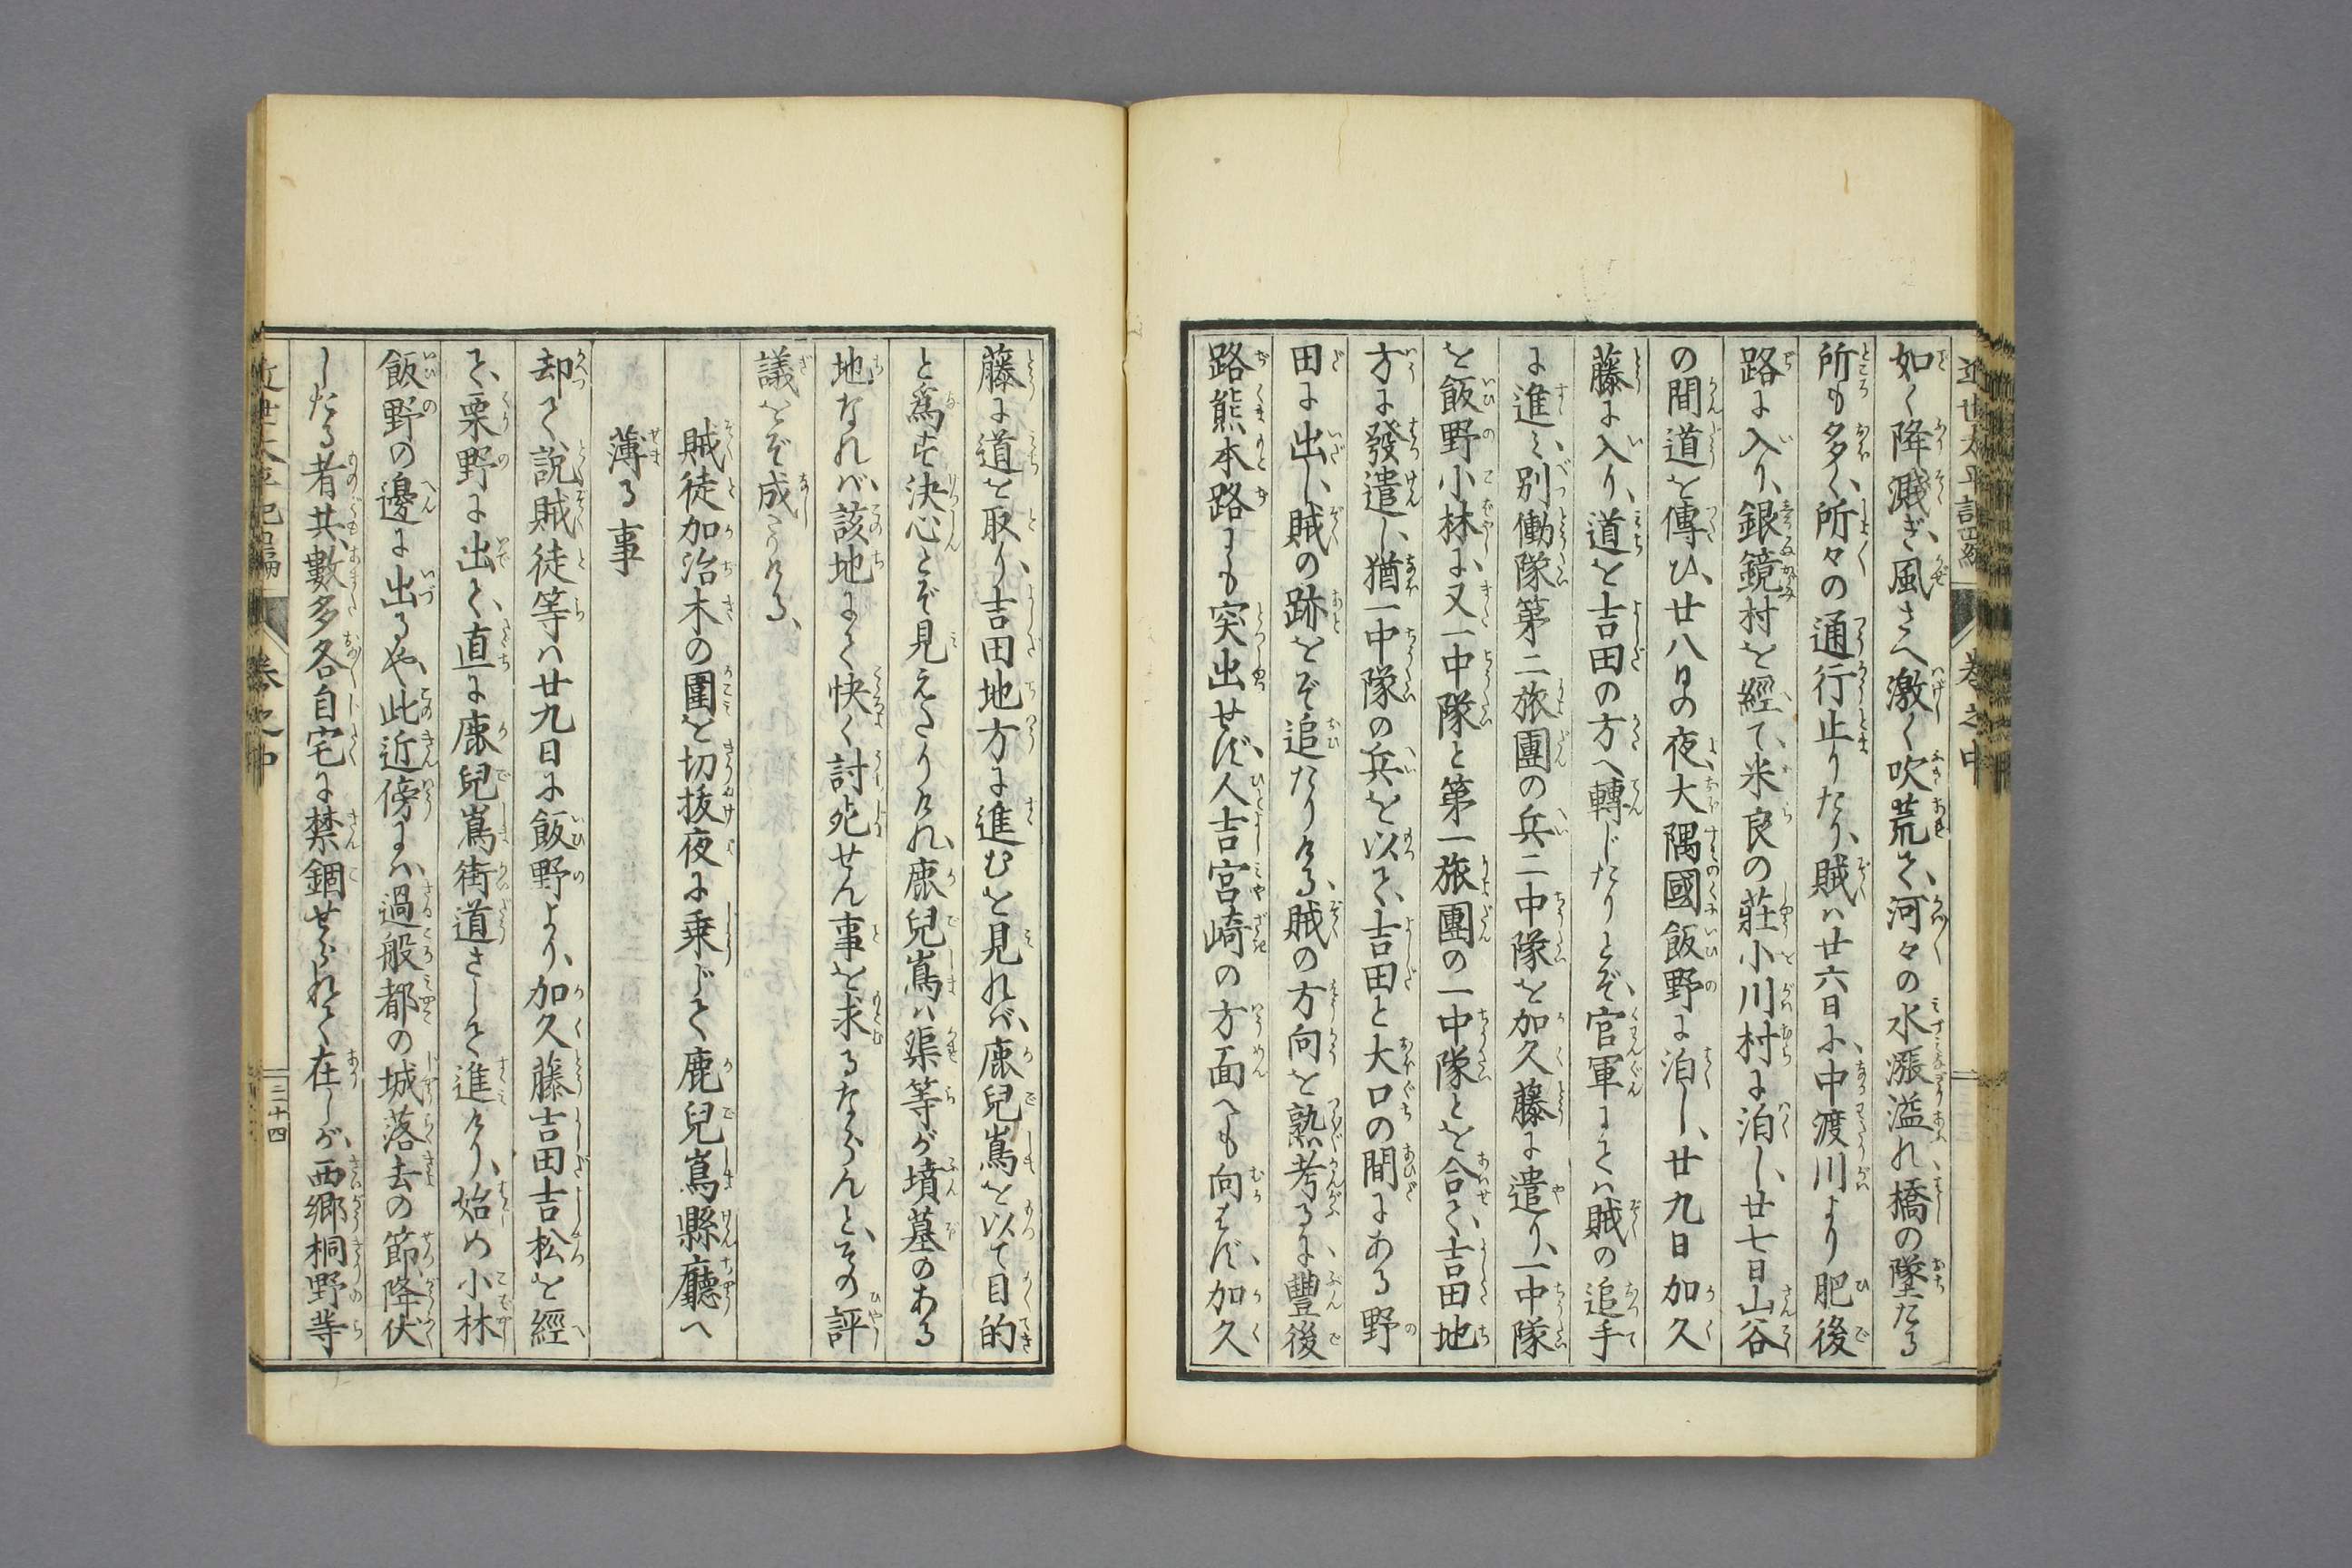 如く降濺ぎ、風さへ激く吹荒て、河々の水漲溢れ、橋の墜たる
所も多く、所々の通行止りたり、賊ハ廿六日に、中渡川より肥後
路に入り、銀鏡村を經て、米良の莊小川村に泊し、廿七日山谷
の間道を傳ひ、廿八日の夜、大隅國飯野に泊し、廿九日加久
藤に入り、道を吉田の方へ轉じたりとぞ、官軍にてハ賊の追手
に進ミ、別働隊第二旅團の兵二中隊を加久藤に遣り、一中隊
を飯野小林に、又一中隊と第一旅團の一中隊とを合て、吉田地
方に發遣し、猶一中隊の兵を以て、吉田と大口の間にある野
田に出し、賊の跡をぞ追たりける、賊の方向を熟考るに、豐後
路熊本路にも突出せず、人吉宮崎の方面へも向はず、加久
藤に道を取り、吉田地方に進むを見れバ、鹿兒嶌を以て目的
と爲せ決心とぞ見えたりけれ、鹿兒嶌ハ渠等が墳墓のある
地なれバ、該地にて快く討死せん事を求るならんと、その評
議をぞ成ける、
賊徒加治木の圍を切抜夜に乗じて鹿兒嶌縣廳へ
薄る事
却て説賊徒等ハ廿九日に飯野より、加久藤吉田吉松を經
て、栗野に出て、直に鹿兒嶌街道さして進けり、始め小林
飯野の邊に出るや、此近傍にハ、過般都の城落去の節、降伏
したる者共、數多各自宅に禁錮せられて在しが、西郷桐野等
近世太平記四編
巻之中
三十四